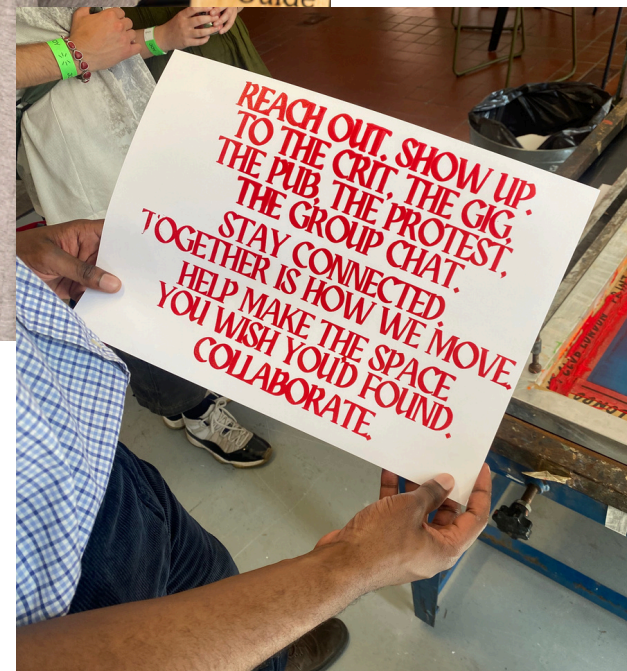 Guide
REACH OUT. SHOW UP.
TO THE CRIT, THE GIG,
THE PUB, THE PROTEST,
THE GROUP CHAT.
STAY CONNECTED.
TOGETHER IS HOW WE MOVE.
HELP MAKE THE SPACE
YOU WISH YOU'D FOUND.
COLLABORATE.